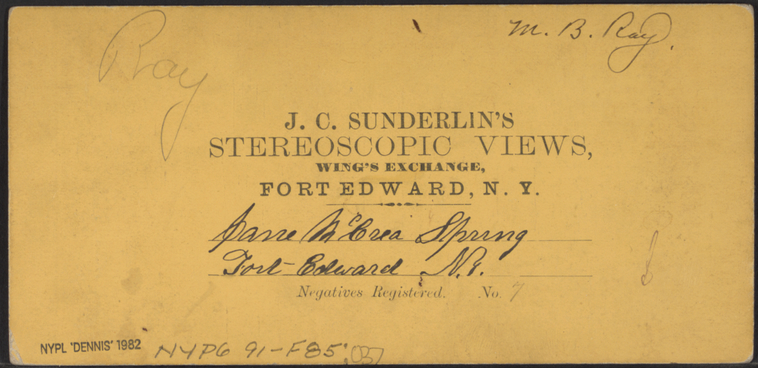 Ray
M. B. Ray.
J. C. SUNDERLIN'S
STEREOSCOPIC VIEWS,
WING'S EXCHANGE,
FORT EDWARD, N. Y.
Jane McCrea Spring
Fort Edward N.Y.
Negatives Registered. No. 7
NYPL 'DENNIS' 1982
NYPG 91-F85:037